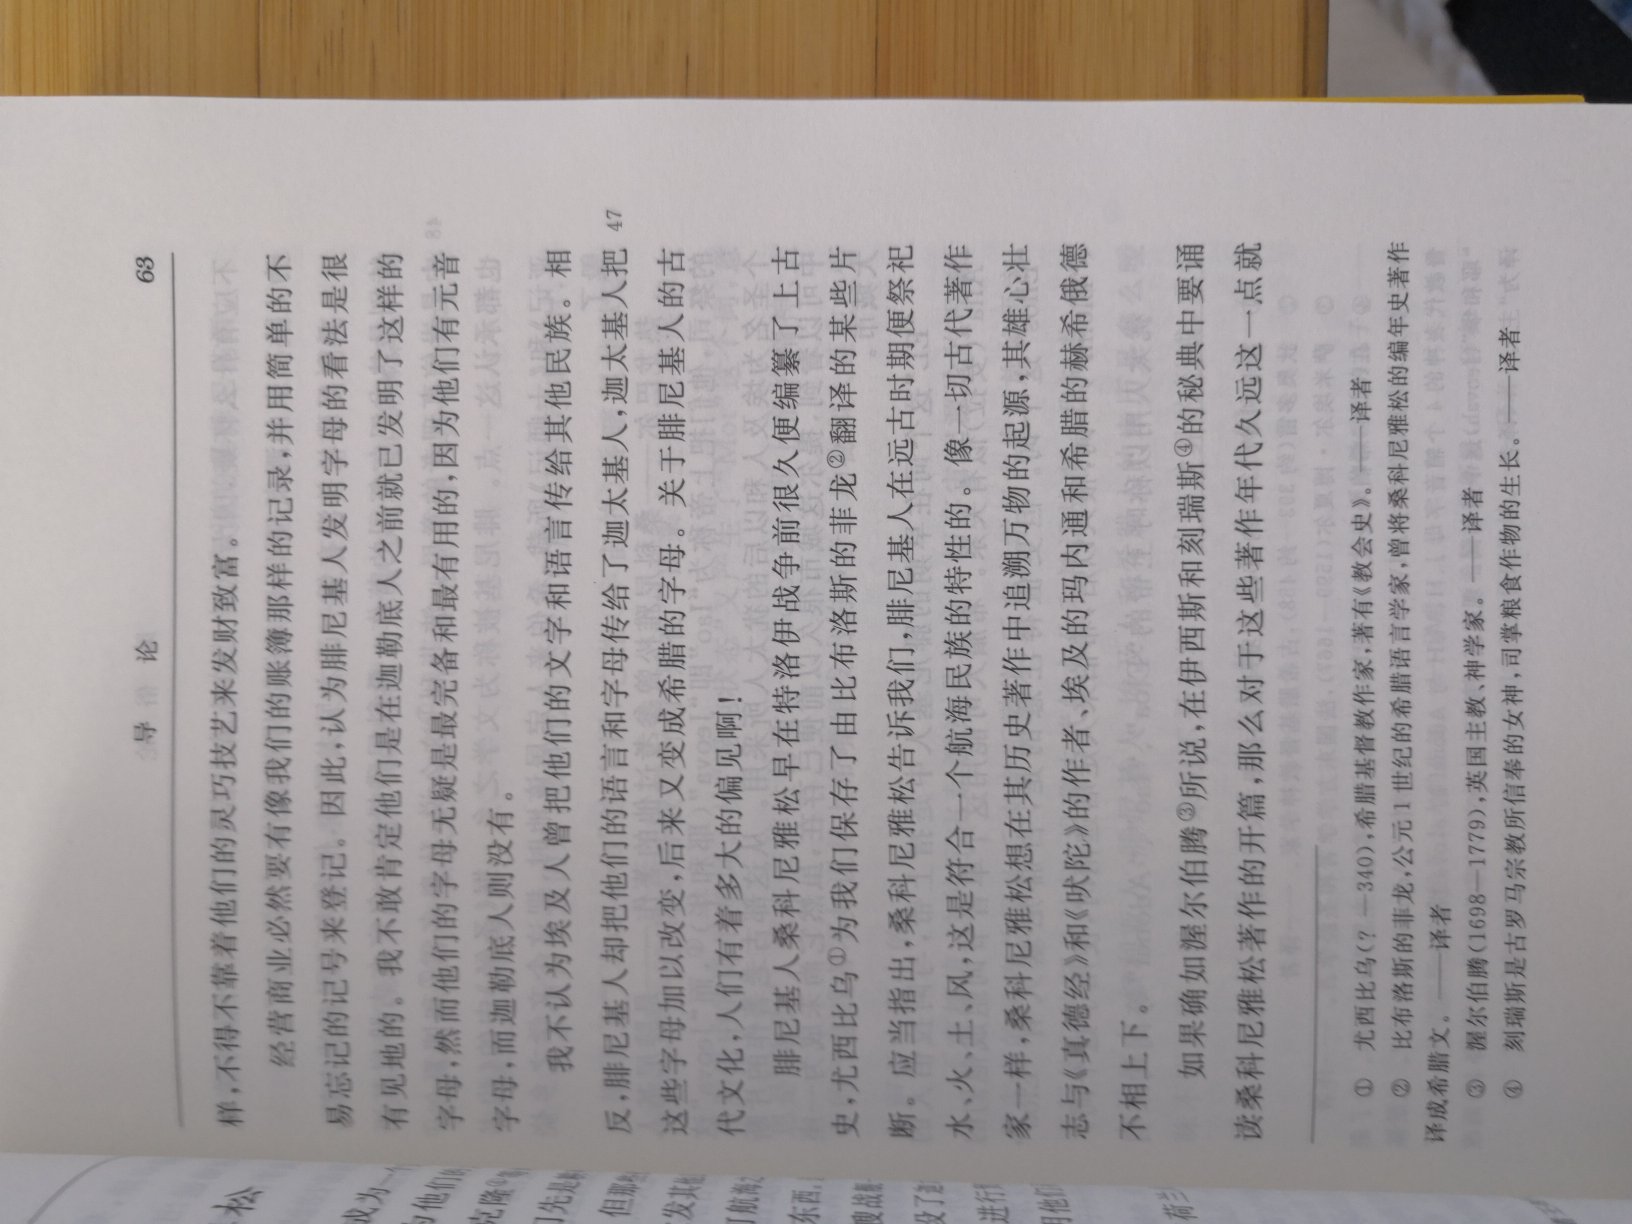 导论 63
样，不得不靠着他们的灵巧技艺来发财致富。
经营商业必然要有像我们的账簿那样的记录，并用简单的不
易忘记的记号来登记。因此，认为腓尼基人发明字母的看法是很
有见地的。我不敢肯定他们是在迦勒底人之前就已发明了这样的
字母，然而他们的字母无疑是最完备和最有用的，因为他们有元音
字母，而迦勒底人则没有。
我不认为埃及人曾把他们的文字和语言传给其他民族。相
反，腓尼基人却把他们的语言和字母传给了迦太基人，迦太基人把 47
这些字母加以改变，后来又变成希腊的字母。关于腓尼基人的古
代文化，人们有着多大的偏见啊！
腓尼基人桑科尼雅松早在特洛伊战争前很久便编纂了上古
史，尤西比乌①为我们保存了由比布洛斯的菲龙②翻译的某些片
断。应当指出，桑科尼雅松告诉我们，腓尼基人在远古时期便祭祀
水、火、土、风，这是符合一个航海民族的特性的。像一切古代著作
家一样，桑科尼雅松想在其历史著作中追溯万物的起源，其雄心壮
志与《真德经》和《吠陀》的作者、埃及的玛内通和希腊的赫希俄德
不相上下。
如果确如渥尔伯腾③所说，在伊西斯和刻瑞斯④的秘典中要诵
读桑科尼雅松著作的开篇，那么对于这些著作年代久远这一点就
① 尤西比乌(？—340)，希腊基督教作家，著有《教会史》。——译者
② 比布洛斯的菲龙，公元1世纪的希腊语言学家，曾将桑科尼雅松的编年史著作
译成希腊文。——译者
③ 渥尔伯腾(1698—1779)，英国主教、神学家。——译者
④ 刻瑞斯是古罗马宗教所信奉的女神，司掌粮食作物的生长。——译者